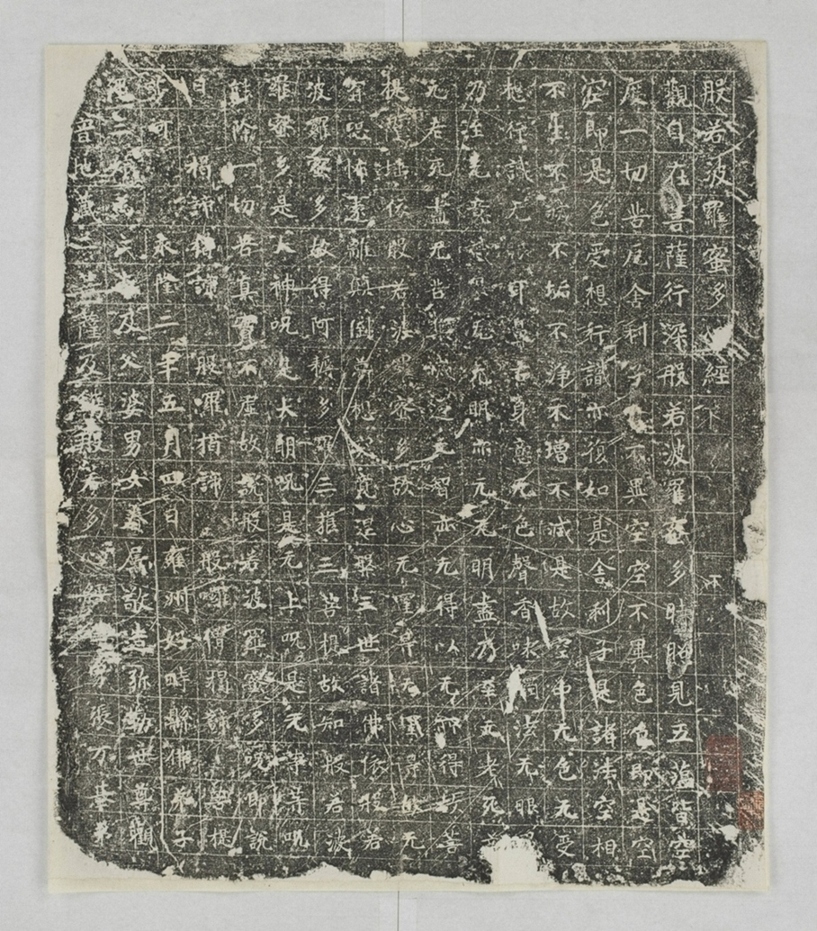 般若波羅蜜多 經
觀自在菩薩行深般若波羅蜜多時照見五蕴皆空
度一切苦厄舍利子 不異空空不異色色即是空
空即是色受想行識亦復如是舍利子是諸法空相
不生不滅不垢不淨不增不減是故空中无色无受
想行識无 耳 舌身意无色聲香味 法无眼
乃至无意 无无明亦无无明盡乃至无老死
无老死盡无苦集滅道无智亦无得以无所得故菩
提薩埵依般若波羅蜜多故心无罣 无罣 故无
有恐怖遠離顛倒夢想究竟涅槃三世諸佛依般若
波羅蜜多故得阿耨多羅三 三菩提故知般若波
羅蜜多是大神呪是大明呪是无上呪是无等等呪
能除一切苦真實不虛故說般若波羅蜜多呪即說
曰 揭諦揭諦 般羅揭諦 般羅僧揭諦 菩提
永隆二年五月四日雍州好時縣佛弟子
為 父婆男女眷属敬造弥勒世尊觀
音地藏 菩薩及 般若多心經 張万